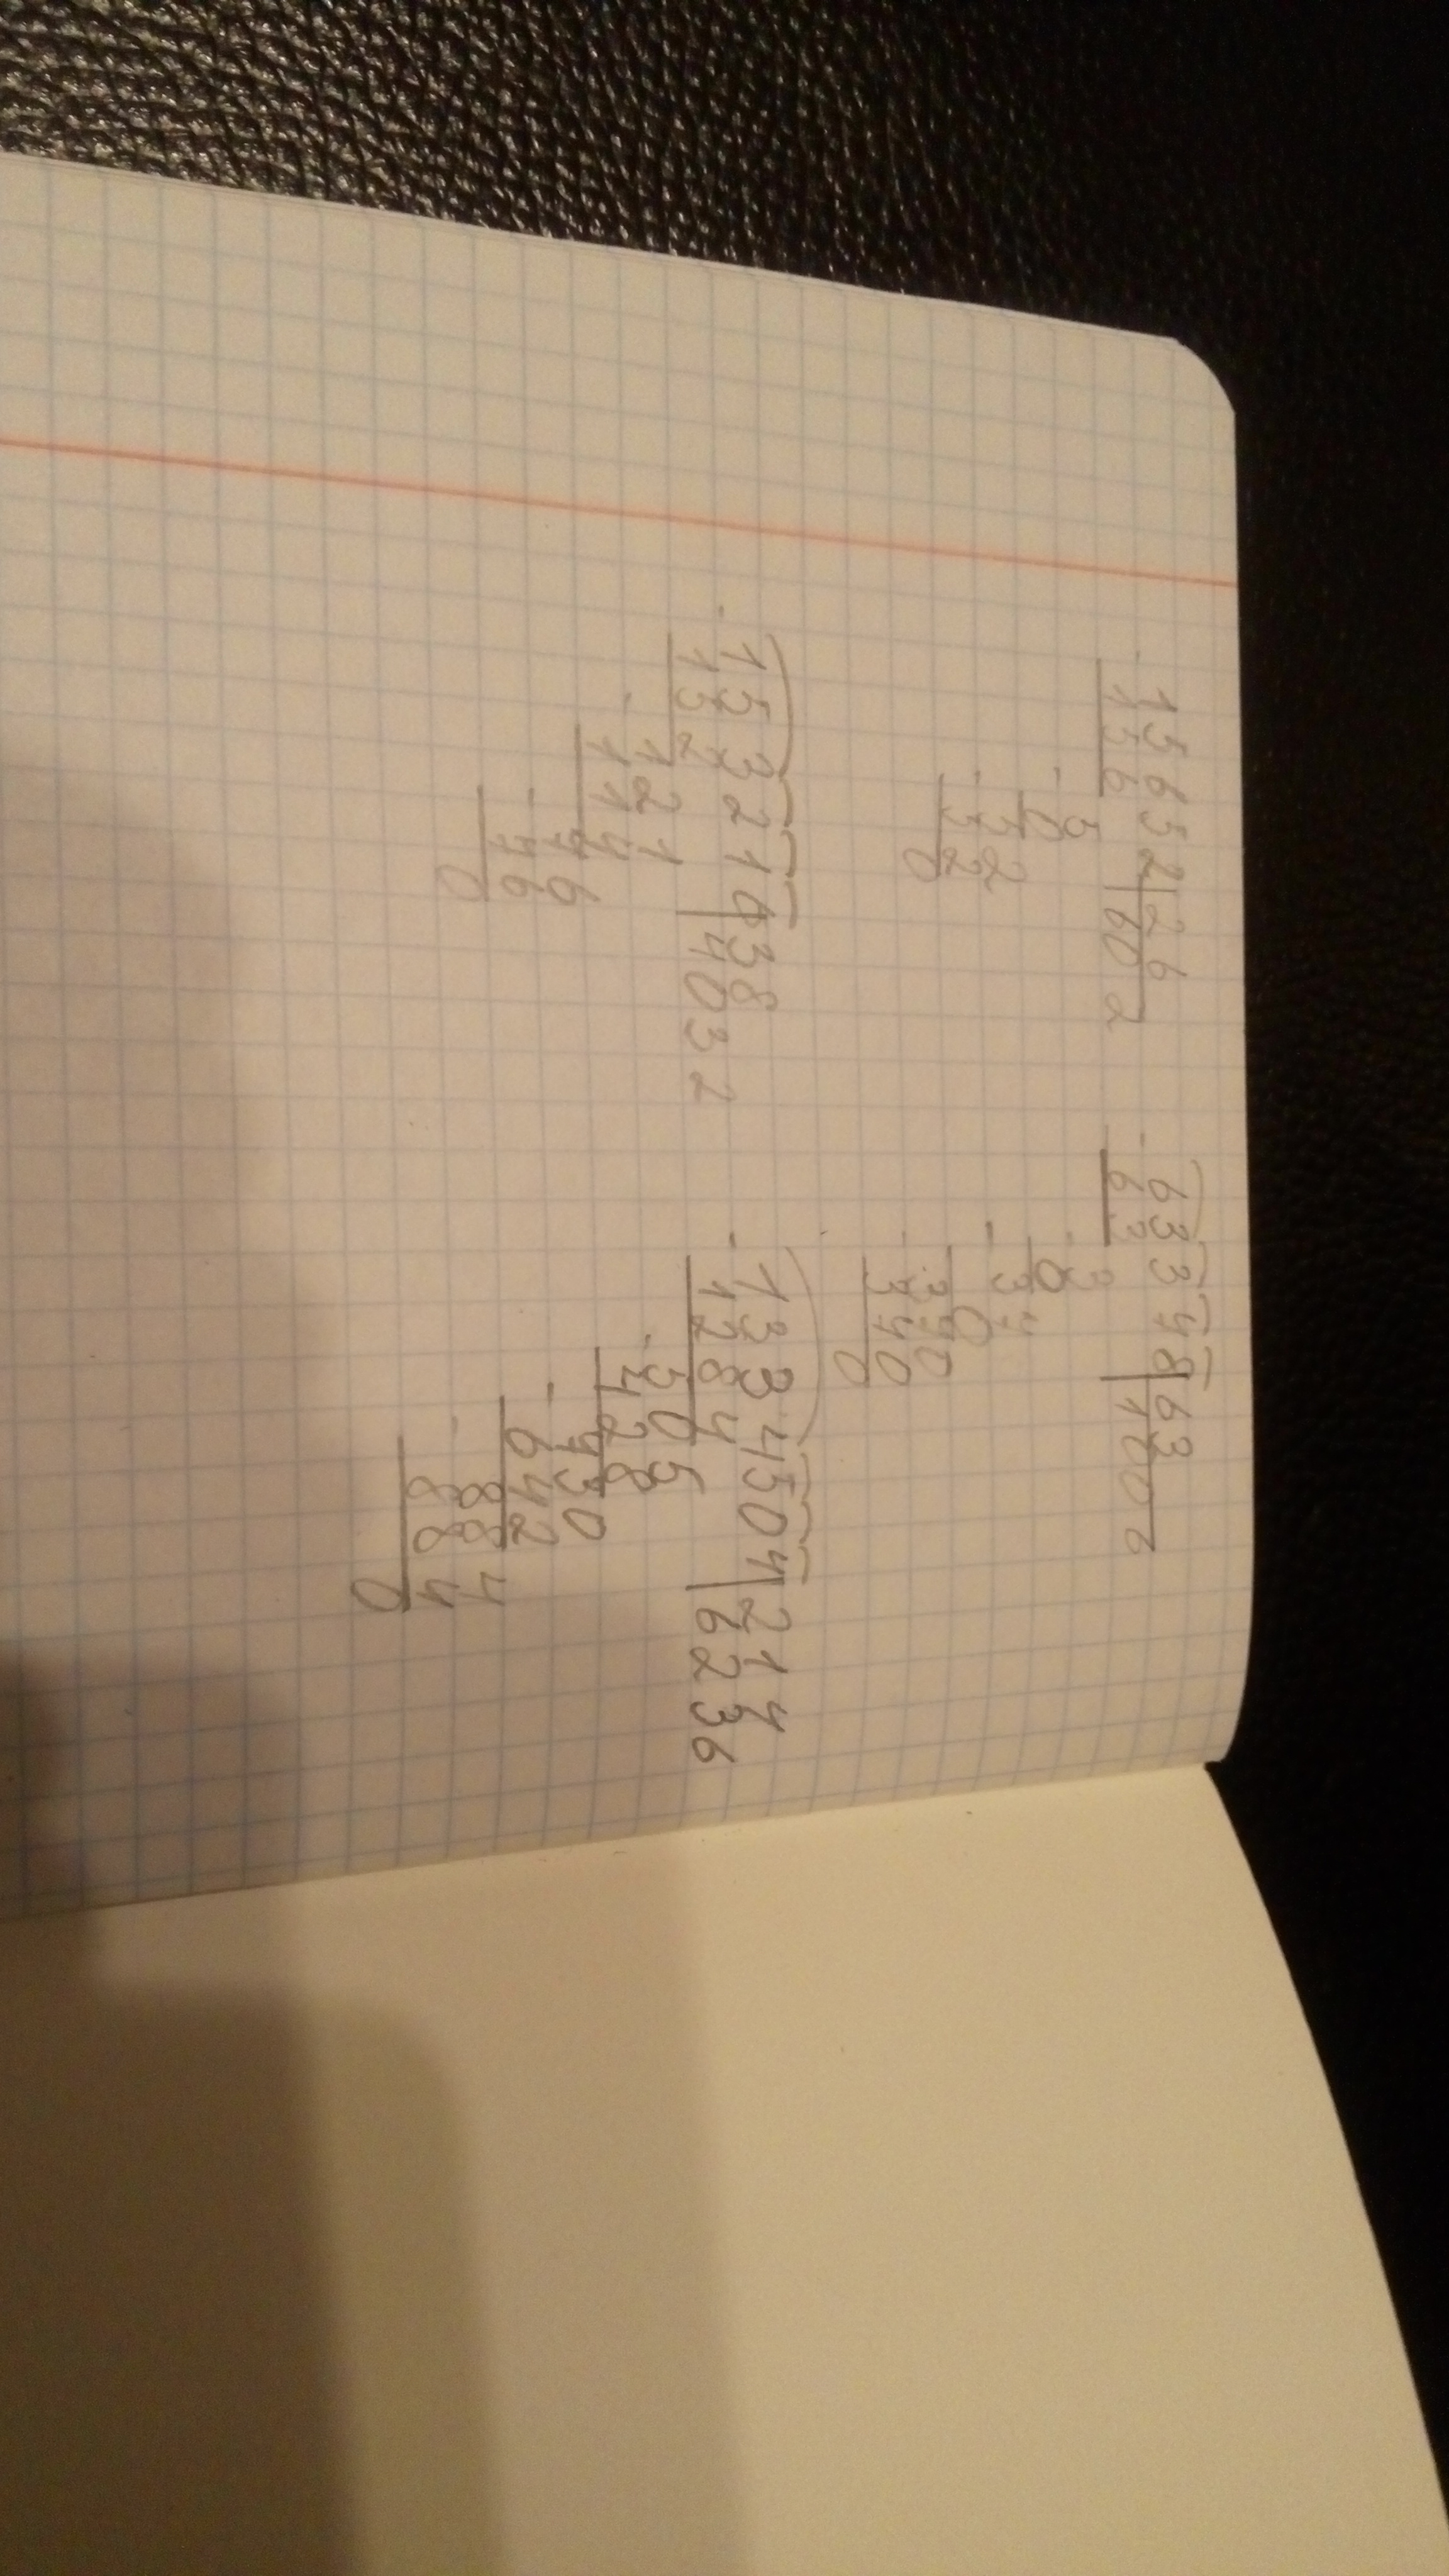 15652|26
156 602
5
0
52
52
0
63378|63
63 1006
3
0
37
0
378
378
0
153216|38
152 4032
121
114
76
76
0
1334504|214
1284 6236
505
428
730
642
884
884
0